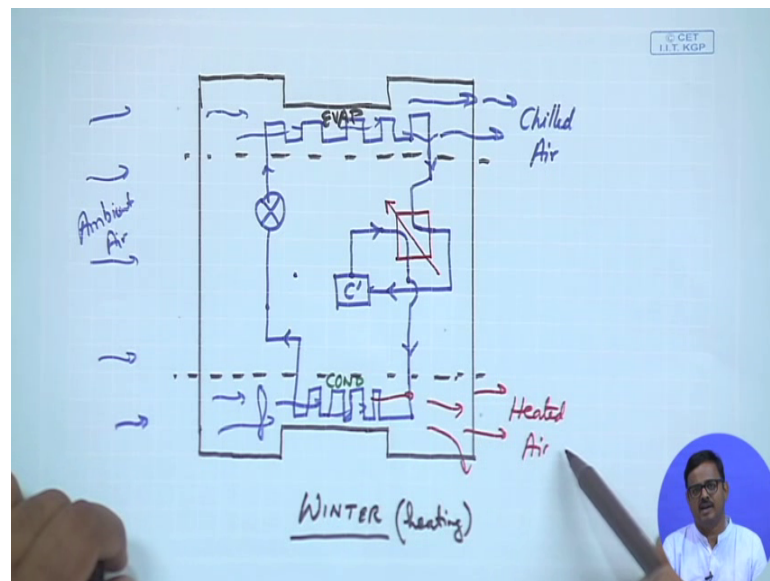 © CET
I.I.T. KGP
EVAP
Chilled
Air
Ambient
Air
C'
COND
Heated
Air
WINTER (heating)